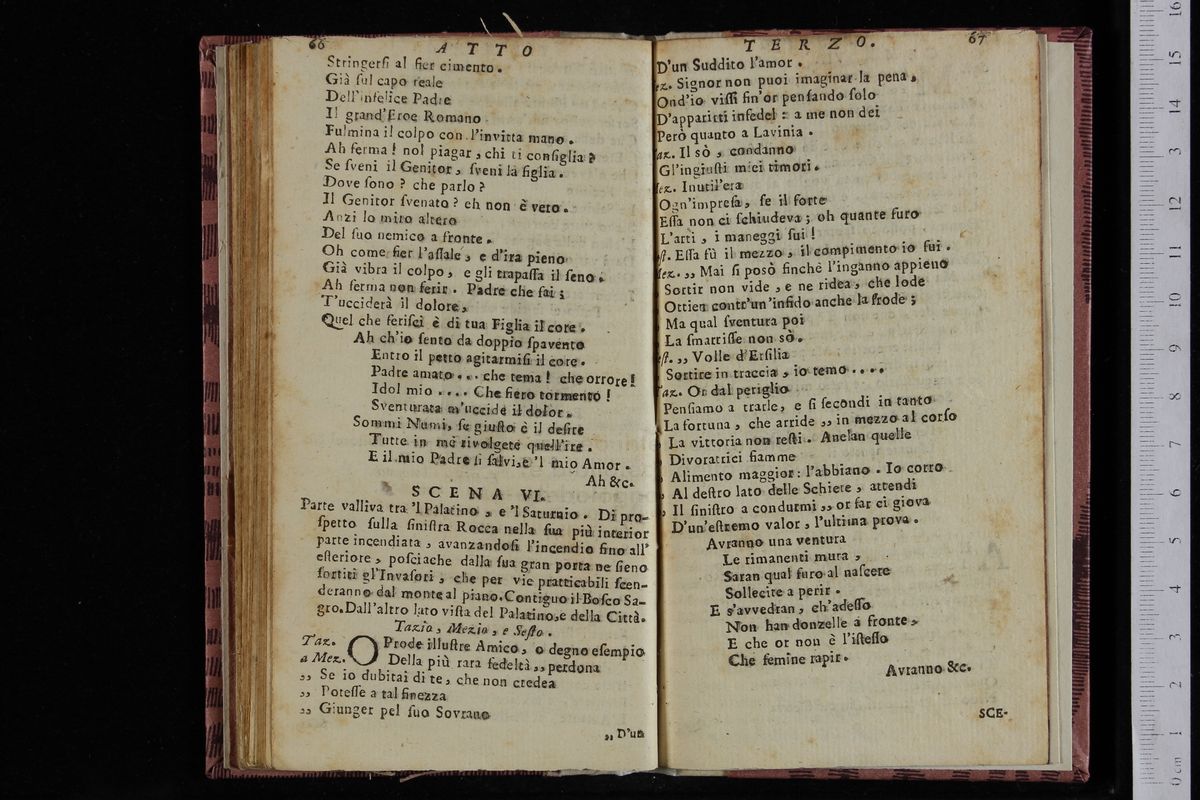 66 ATTO
Stringerſi al fier cimento.
Già ſul capo reale
Dell'infelice Padre
Il grand'Eroe Romano
Fulmina il colpo con l'invitta mano.
Ah ferma! nol piagar, chi ti conſiglia?
Se ſveni il Genitor, ſveni la figlia.
Dove ſono? che parlo?
Il Genitor ſvenato? eh non è vero.
Anzi lo miro altero
Del ſuo nemico a fronte.
Oh come fier l'aſſale, e d'ira pieno
Già vibra il colpo, e gli trapaſſa il ſeno.
Ah ferma non ferir. Padre che fai;
T'ucciderà il dolore,
Quel che feriſci è di tua Figlia il core.
Ah ch'io ſento da doppio ſpavento
Entro il petto agitarmiſi il core.
Padre amato... che tema! che orrore!
Idol mio.... Che fiero tormento!
Sventurata m'uccide il dolor.
Sommi Numi, ſe giuſto è il deſire
Tutte in me rivolgete quell'ire.
E il mio Padre ſi ſalvi, e 'l mio Amor.
Ah &c.
SCENA VI.
Parte valliva tra 'l Palatino, e 'l Saturnio. Di pro-
ſpetto ſulla ſiniſtra Rocca nella ſua più interior
parte incendiata, avanzandoſi l'incendio fino all'
eſteriore, poſciache dalla ſua gran porta ne ſieno
ſortiti gl'Invaſori, che per vie pratticabili ſcen-
deranno dal monte al piano. Contiguo il Boſco Sa-
gro. Dall'altro lato viſta del Palatino, e della Città.
Tazio, Mezio, e Seſto.
Taz. O Prode illuſtre Amico, o degno eſempio
a Mez. Della più rara fedeltà,, perdona
,, Se io dubitai di te, che non credea
,, Poteſſe a tal finezza
,, Giunger pel ſuo Sovrano
,, D'un
TERZO. 67
D'un Suddito l'amor.
ez. Signor non puoi imaginar la pena,
Ond'io viſſi fin'or penſando ſolo
D'apparirti infedel: a me non dei
Però quanto a Lavinia.
az. Il sò, condanno
Gl'ingiuſti miei timori.
ez. Inutil'era
Ogn'impreſa, ſe il forte
Eſſa non ci ſchiudeva; oh quante furo
L'arti, i maneggi ſui!
ſt. Eſſa fù il mezzo, il compimento io fui.
ez. ,, Mai ſi posò finchè l'inganno appieno
Sortir non vide, e ne ridea, che lode
Ottien contr'un'infido anche la frode;
Ma qual ſventura poi
La ſmarriſſe non sò.
ſt. ,, Volle d'Erſilia
Sortire in traccia, io temo....
az. Or dal periglio
Penſiamo a trarle, e ſi ſecondi in tanto
La fortuna, che arride ,, in mezzo al corſo
La vittoria non reſti. Anelan quelle
Divoratrici fiamme
Alimento maggior: l'abbiano. Io corro
Al deſtro lato delle Schiere, attendi
Il ſiniſtro a condurmi ,, or far ci giova
D'un'eſtremo valor, l'ultima prova.
Avranno una ventura
Le rimanenti mura,
Saran qual furo al naſcere
Sollecite a perir.
E s'avvedran, ch'adeſſo
Non han donzelle a fronte,
E che or non è l'iſteſſo
Che femine rapir.
Avranno &c.
SCE-
0 cm 1 2 3 4 5 6 7 8 9 10 11 12 13 14 15 16